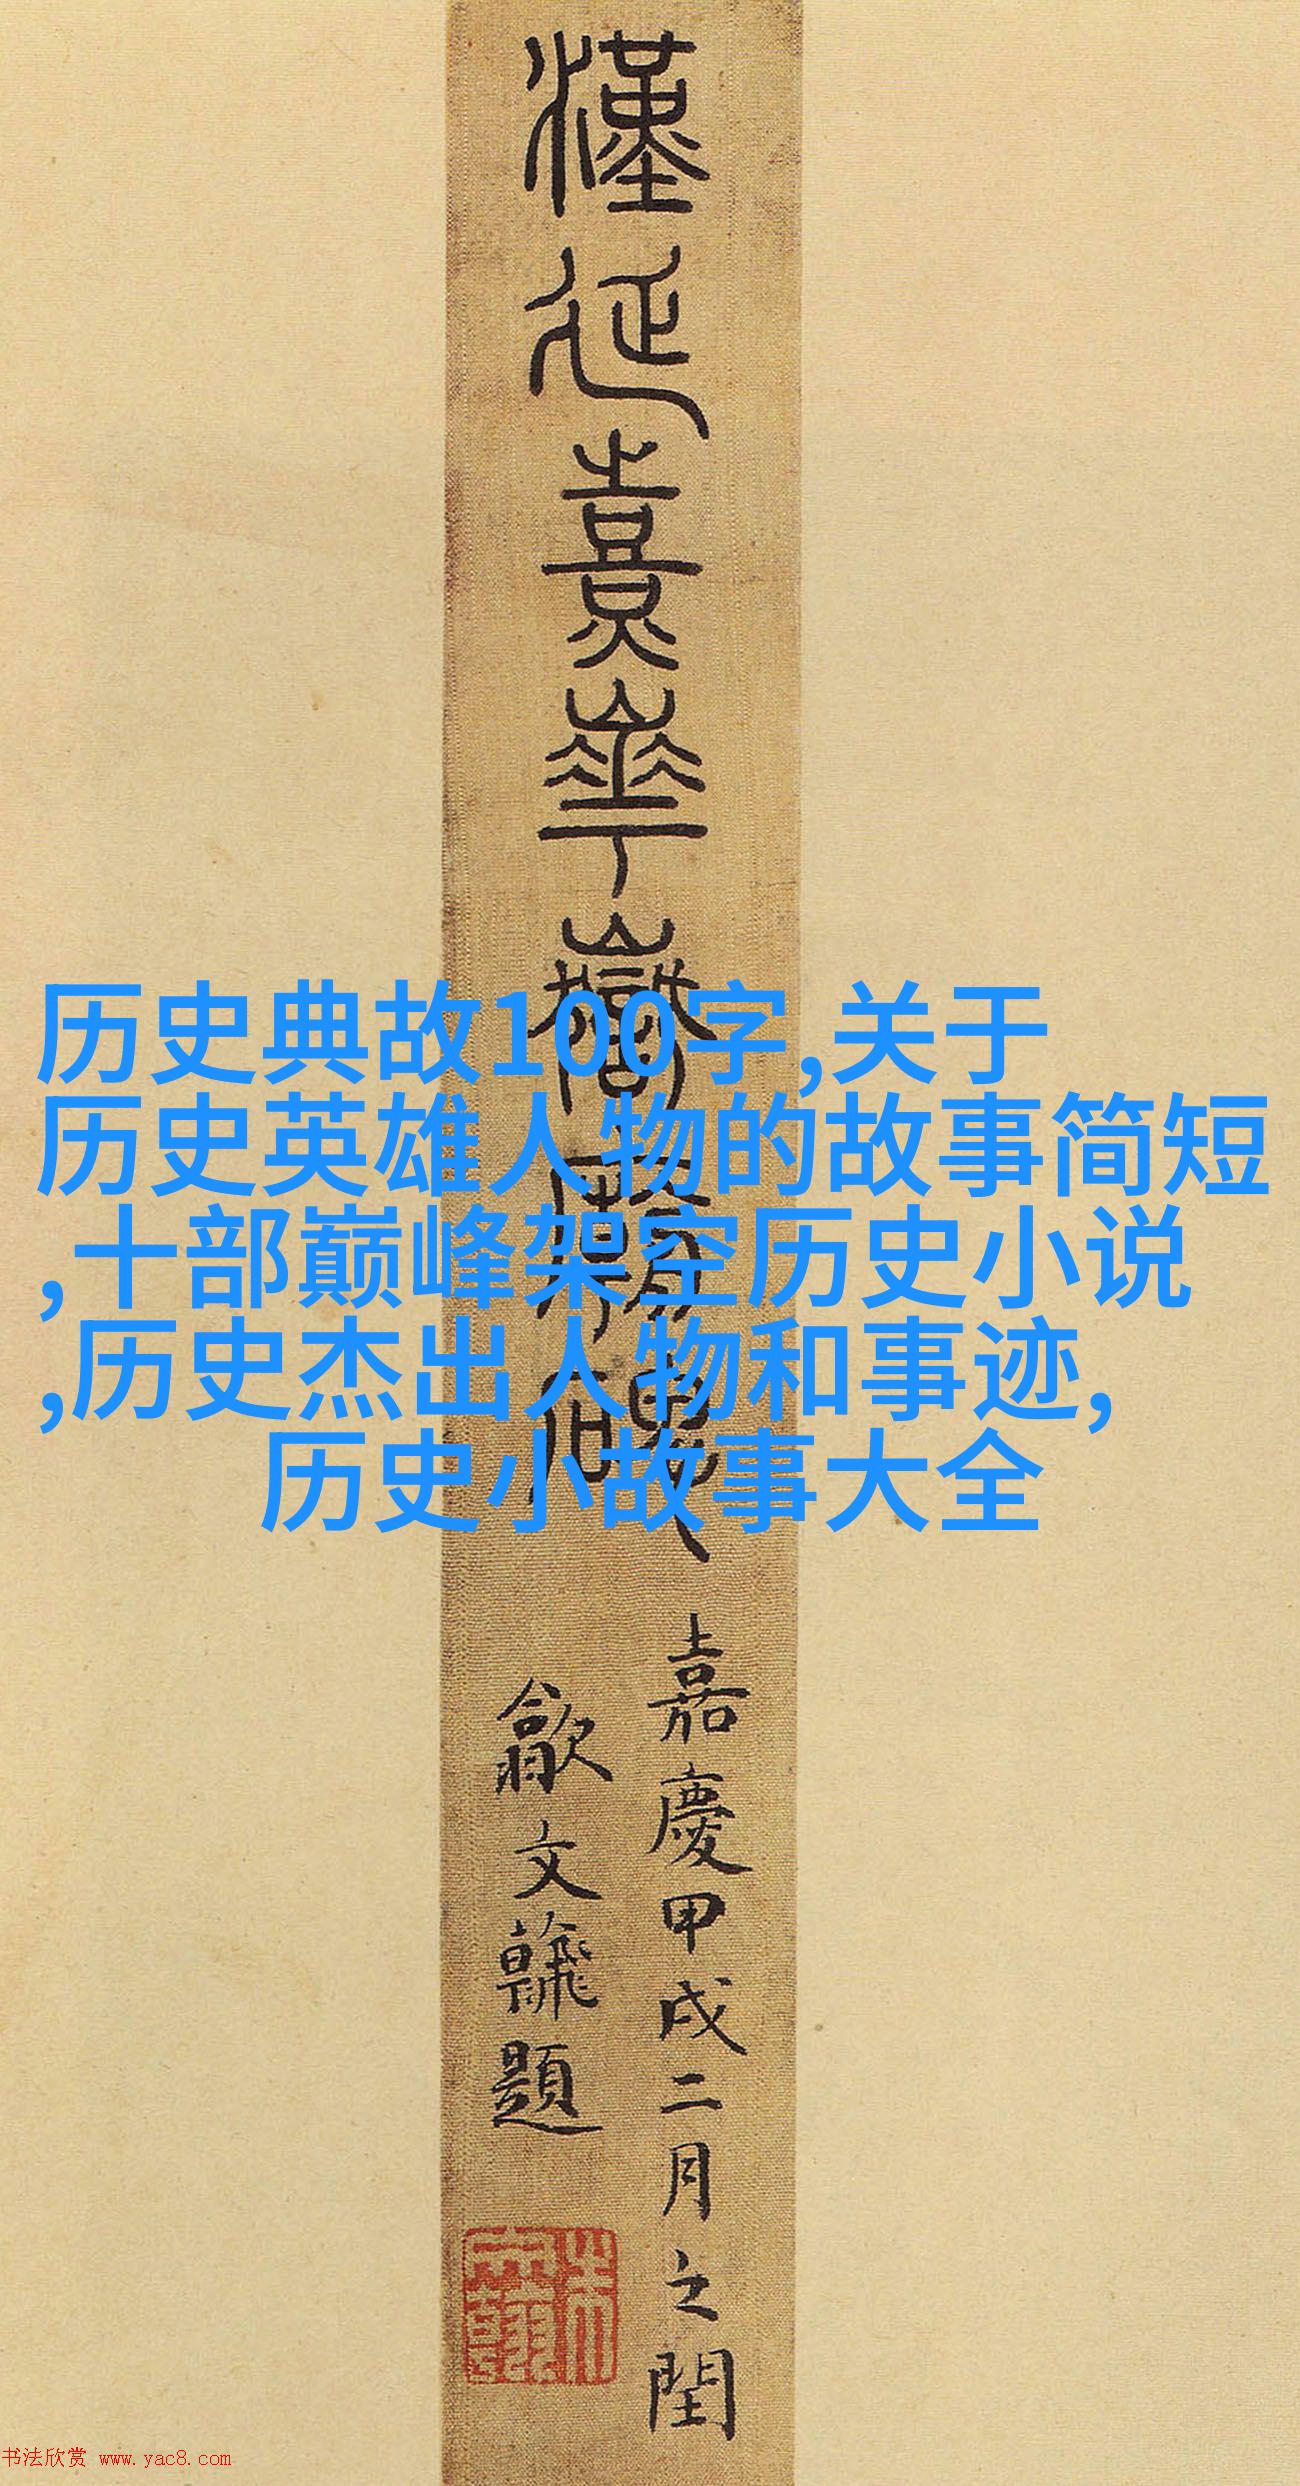 漢延熹華嶽廟碑
嘉慶甲戌二月之閏
歙文題
历史典故100字,关于
历史英雄人物的故事简短
,十部巅峰架空历史小说
,历史杰出人物和事迹,
历史小故事大全
书法欣赏 www.yac8.com